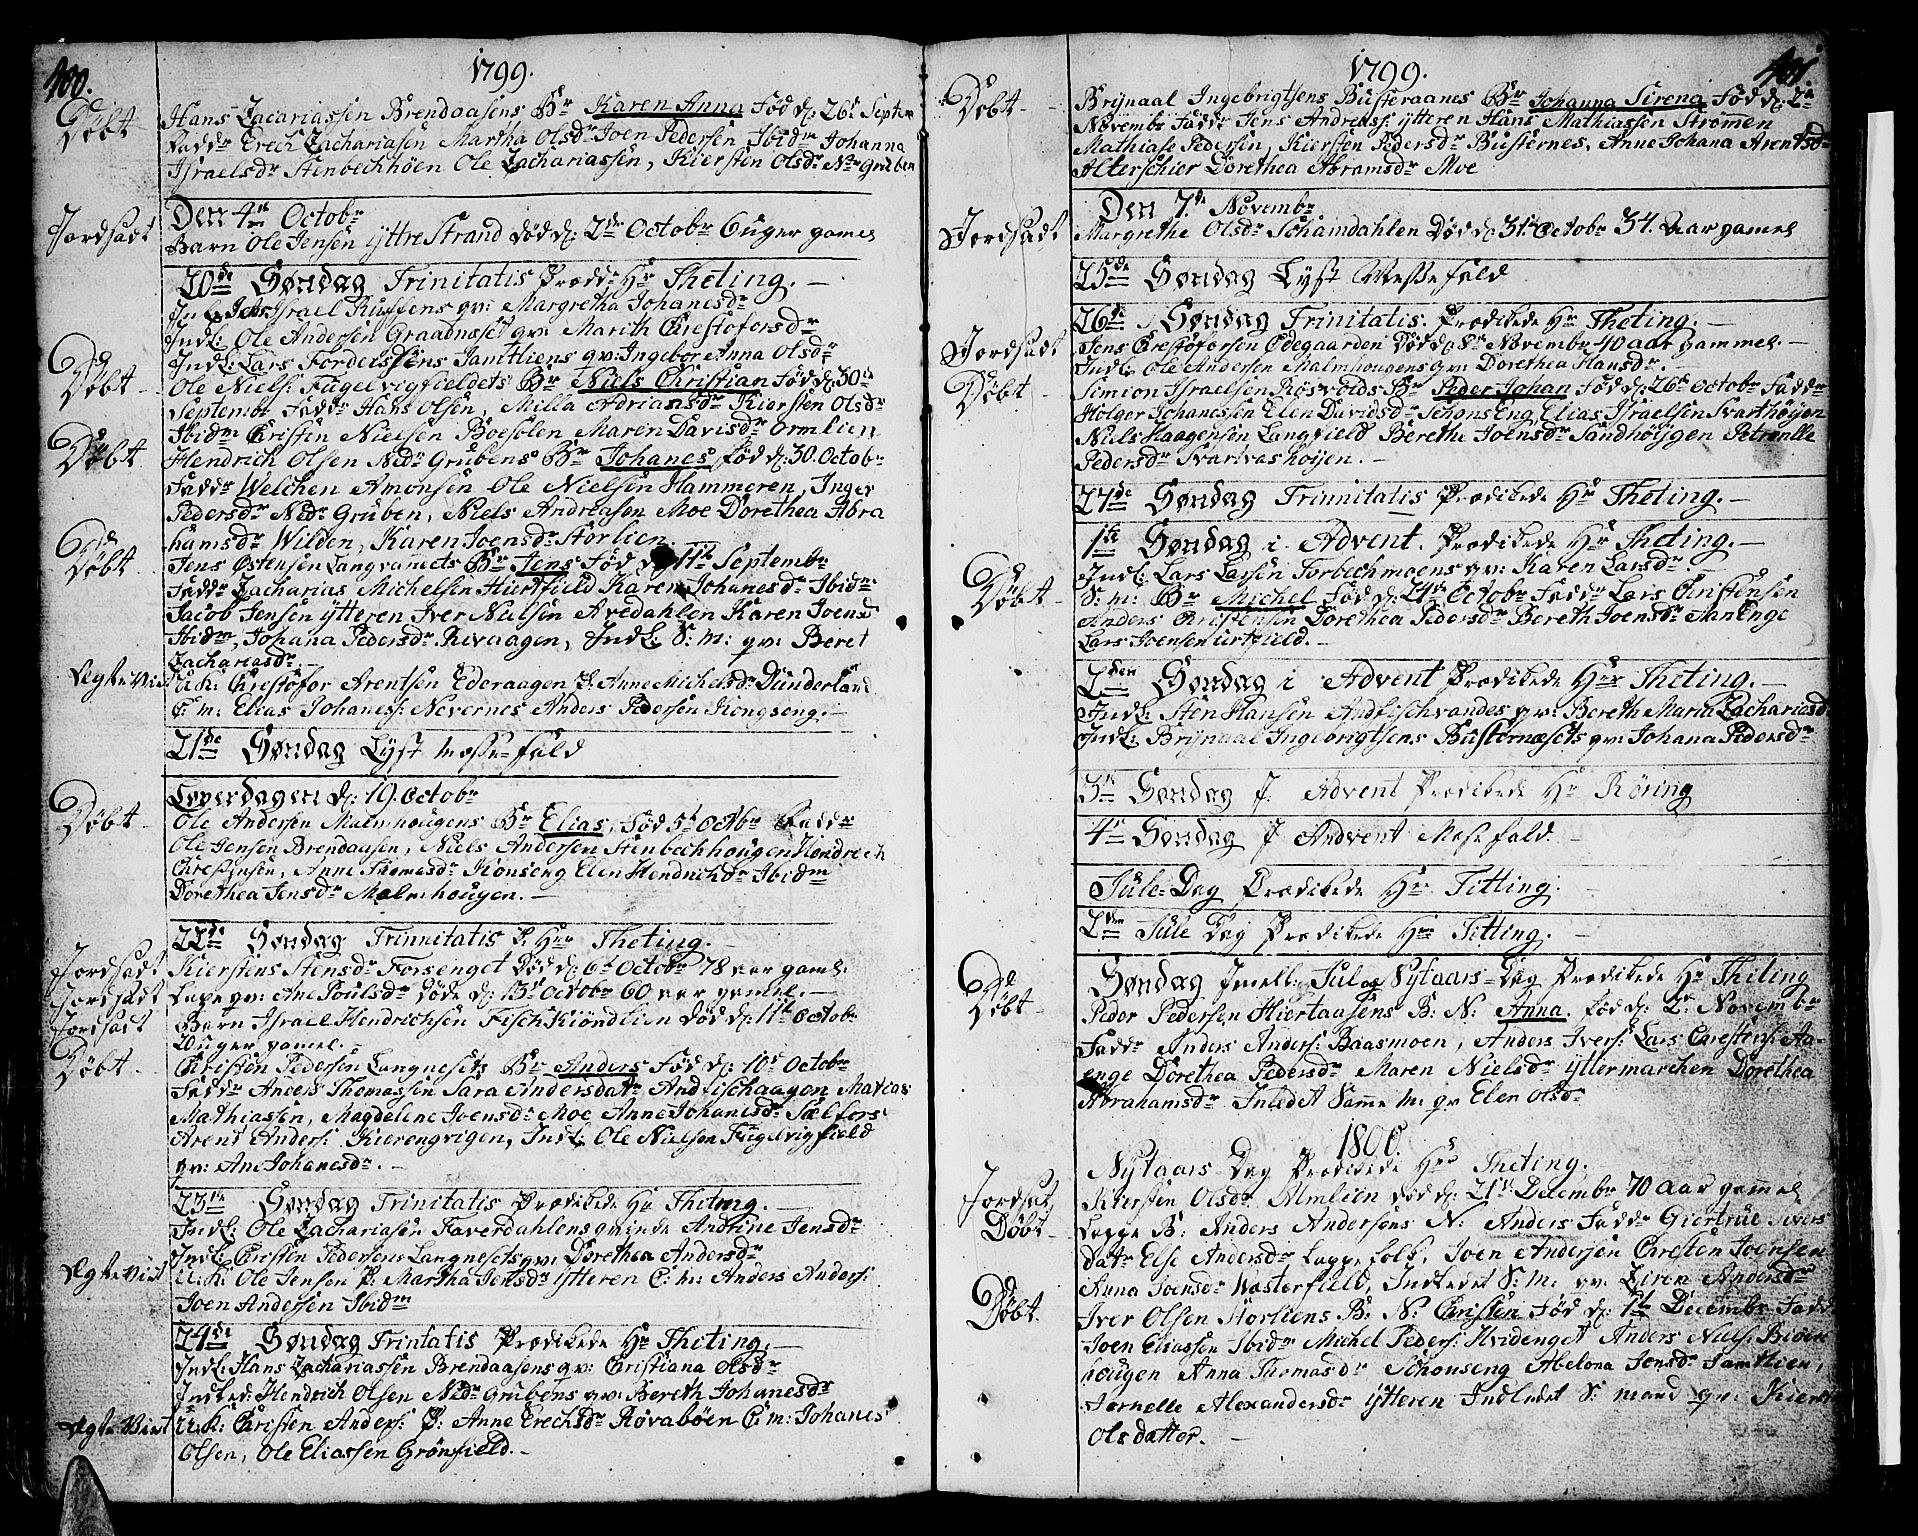 400.
1799.
Døbt Hans Zacariassen Brendaasens Br Karen Anna Fød d: 26de Septem
Fadd Erech Zachariasen Martha Olsdr Joen Pedersen, Ibidm Johanna
Israelsdr Stenbechhøen Ole Zachariassen, Kiersten Olsdr Ndr Gruben
Den 4de Octobr
Jordsadt Barn Ole Jensen ytreStrand død d: 2de Octobr 6 uger gamel
20de Søndag Trinitatis Præd. Hr Theting.
Israel gv: Margretha Johanesdr
Indl: Ole Andersen Graadnæset gv: Marith Chrestofersdr
Indl: Lars Fordelssens Jamtliens gv: Ingebor Anna Olsdr
Døbt Ole Niels: Fugelvigfieldets Br Niels Christian Fød d: 30te
Septembr Fadd Hans Olsen, Milla Adriansdr Kiersten Olsdr
Ibidm Christen Nielsen Boesolen Maren Davisdr Ormlien
Døbt Hendrich Olsen Nedr Grubens Br Johanes Fød d: 30. Octobr
Faddr Welchen Amonsen Ole Nielsen Hammeren, Inger
Pedersdr Nedr Gruben, Niels Andreasen Moe Dorethea Abra
hamsdr Wilden, Karen Joensdr Storlien
Døbt Jens Østensen Langvamets Br Jens Fød d 11te Septembr
Faddr Zacharias Michelsen Hiertfield Karen Johanesdr Ibidm
Jacob Jensen ytteren Iver Nielsen Avedahlen Karen Joensd
Ibidm, Johana Pedersdr Revaagen, Indl: S: m: gv: Beret
Zachariasdr.
Ægte Viet U: K: Chrestofor Arentsen Ederaagen P. Anne Michelsdr Dunderland
C: m: Elias Johaness: Nevernes Anders Pedersen Kongseng.
21de Søndag Lyst Messe-Fald
Løverdagen d: 19. Octobr
Døbt Ole Andersen Malmhougens Br Elias, Fød 5t Octbr Faddr
Ole Jensen Brendaasen, Niels Andersen Stenbechhougen Hendrich
Chrestensen, Anne Thomasdr Konseng Elen Hendrichdr Ibidm
Dorethea Jensdr Malmhougen.
22de Søndag Trinnitatis P. Hrr Theting.
Jordsadt Kierstens Stensdr Forsenget Død d: 6t Octobr 78 aar gaml.
Jordsadt Lape qv: Ane Poulsdr døde d: 13t Octobr 60 aar gamel.
Jordsadt Barn Israel Hendrichsen FischKiøndlien død d: 11t Octobr
uger gamel.
Døbt Christen Pedersen Langnesets Br Anders Fød d: 10t Octobr
Faddr Anders Thomassen Sara Andersdatr Andfischaagen Matias
Mathiassen, Magdelene Joensdr Moe Anne Johanisdr Sælfors
Arent Anders: Kierengvigen, Indl: Ole Nielsen Fugelvigfield
gv: Ane Johanesdr.
23de Søndag Trinitatis Prædikede Hr Theting.
Indl: Ole Zachariasen Taverdahlens gvinde Andrine Jensdr
Indl: Christen Pedersens Langnesets gv: Dorethea Andersdr
Ægte Viet U: K: Ole Jensen P: Martha Jensdr ytteren C: m: Anders Anders:
Joen Andersen Ibidm
24de Søndag Trintatis Prædikede Hr Theting.
Indl: Hans Zachariassen Brendaasens gv: Christiana Olsdr
Indled: Hendrich Olsen Nedr Grubens gv: Bereth Johanesdr
Ægte Viet U: K: Christen Anders: P: Anne Erechsdr Røvabøen C: m: Johanes
Olsen, Ole Eliassen Grønfield.
401
1799.
Døbt Brynaal Ingebrigtsens Busteraanes Br Johanna Sirena Fød d: 2de
Novembr Faddr Jens Andreass: ytteren Hans Mathiassen Strømen
Mathiase Pedersen, Kiersten Pedersdr Busternes, Anne Johana Arentsdr
Alterschier Dorethea Abramsdr Moe
Den 7de Novembr
Jordsadt Margrethe Olsdr Schamdahlen Død d: 31te Octobr 34. Aar gamel
25de Søndag Lyst Messefald
26de Søndag Trinitatis. Prædikede Hr Theting.
Jordsadt Jens Chrestofersen Ødegaarden Død d: 8de Novembr 40 aar gammel.
Indl: Ole Andersen Malmhougens gv: Dorethea Hansdr.
Døbt Simion Israelsen Røsvolds Br Peder Johan Fød d: 26t Octobr Faddr
Holger Johanessen Elen Davidsdr SchonsEng, Elias Israelsen Svarthøyen
Niels Haagensen Langfield Berethe Joensdr Sandhøygen Petronlle
Pedersdr Svartvashøyen.
27de Søndag Trinnitatis Prædikede Hr Theting.
1ste Søndag i Advent. Prædikede Hr Theting.
Indl: Lars Larsen Torbechmoens gv: Karen Larsdr.
Døbt S: m: Br Michel Fød d: 24de Octobr Faddr Lars Christensen
Anders Christensen Dorethea Pedersdr Bereth Joensdr AanEnge
Lars Joensen urtfield.
2den Søndag i Advent Prædikede Hrr Theting.
Indl: Sten Hansen Andfischvandes gv: Bereth Maria Zachariasd
Indl: Brynaal Ingebrigtsens Busternæsets gv: Johana Pedersdr
3de Søndag J. Advent Prædikede Hr Røring
4de Søndag J Andvent Mesefald.
Jule: Dag Prædikede Hrr Titting.
2den Jule Dag Prædikede Hrr Titting.
Søndag Imell: Jul og Nytaars-Dag Prædikede Hr Theting
Døbt Peder Pedersen Hiertaasens B: N: Anna. Fød d: 2de Novembr
Faddr Anders Anders: Baasmoen, Anders Ivers: Lars Chrestens: Aa-
enge Dorethea Pedersdr Maren Nielsdr yttermarchen Dorethea
Abrahamsdr Indledt Samme m: gv Elen Olsdr
1800.
Nytaars Dag Prædikede Hrr Theting.
Jordsat Kiersten Olsdr Almlien død d: 21de Decembr 70 aar gammel
Døbt Lappe B: Anders Andersens N: Anders Faddr Giertrue Sivers
datr Else Andersdr Lappefolk, Joen Andersen Chresten Joensen
Anna Joensdr Wasterfield, Indledet S: m: gv: Andersdr
Døbt Iver Olsen Storliens B: N: Christen Fød d: 1st Decembr Fadd
Joen Eliassen Ibidm Michel Peders: Hvidenget Anders Niels: Biørn
hougen Anna Thomasdr Schonseng Abelona Jonsdr Jamtlien,
Pernelle Alexandersdr ytteren Indledet S: mand gv: Kierst
Olsdatter.